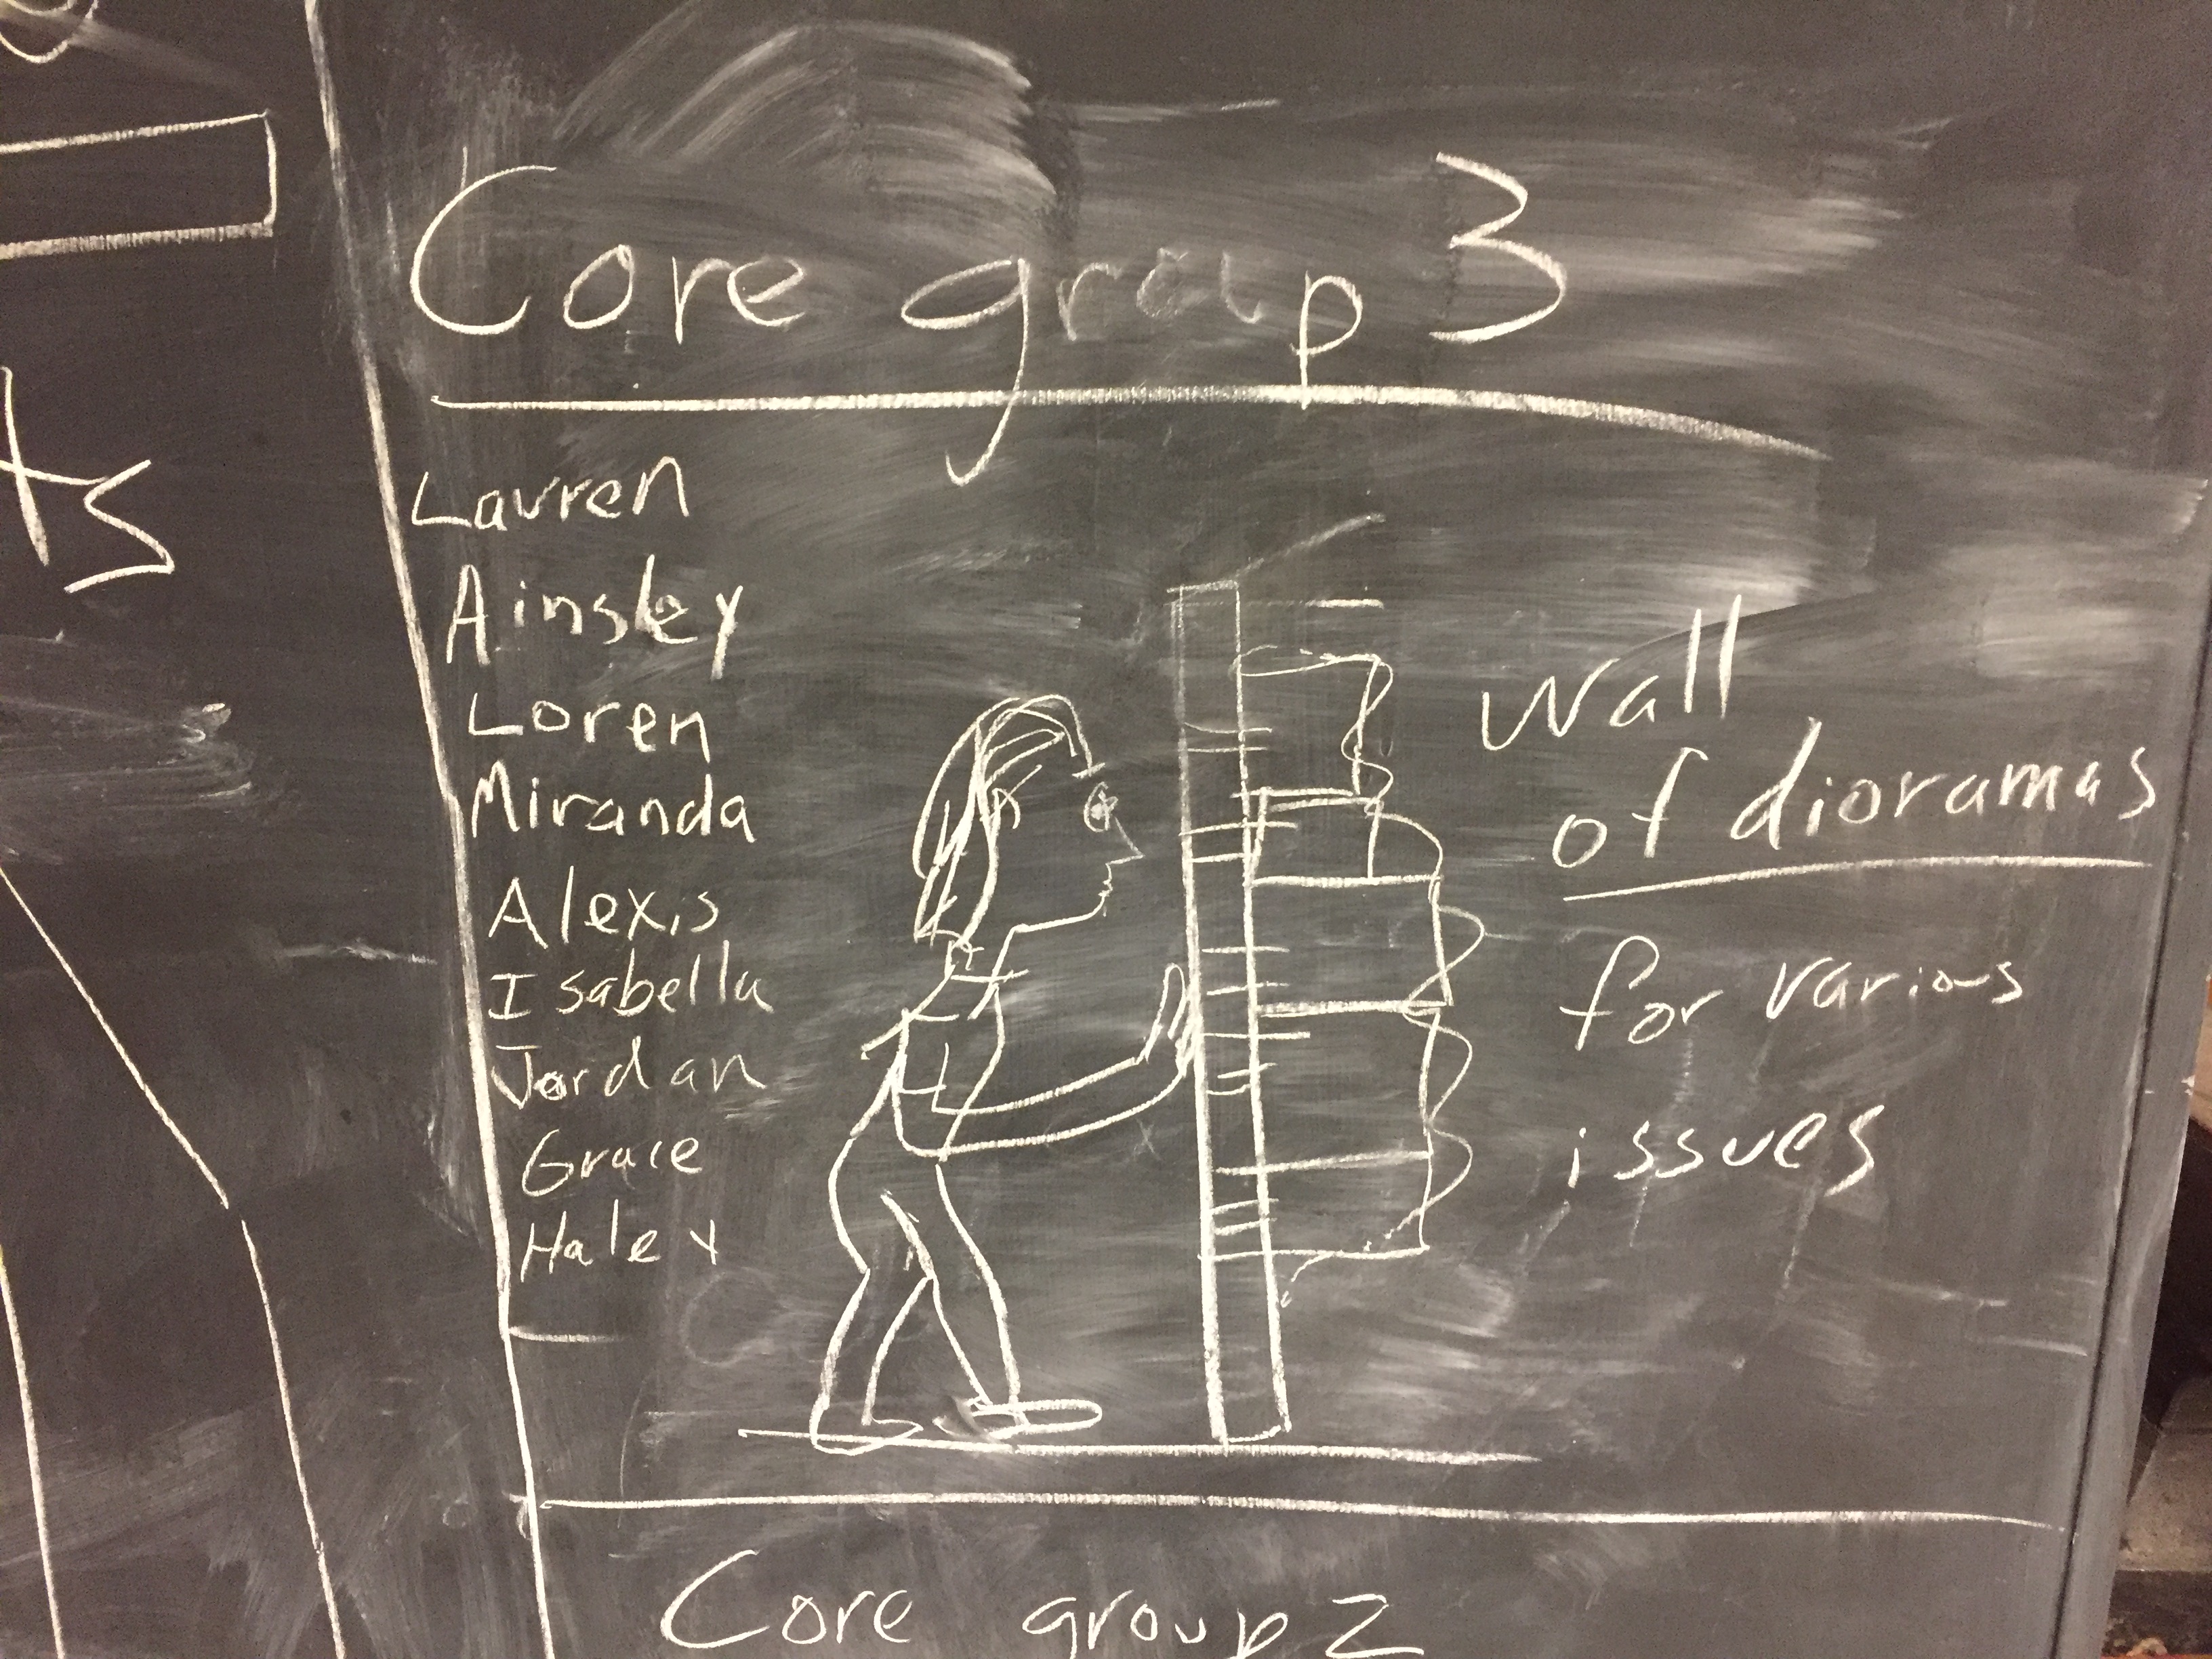 ts
Core group 3
Lauren
Ainsley
Loren
Miranda
Alexis
Isabella
Jordan
Grace
Haley
wall
of dioramas
for various
issues
Core group 2